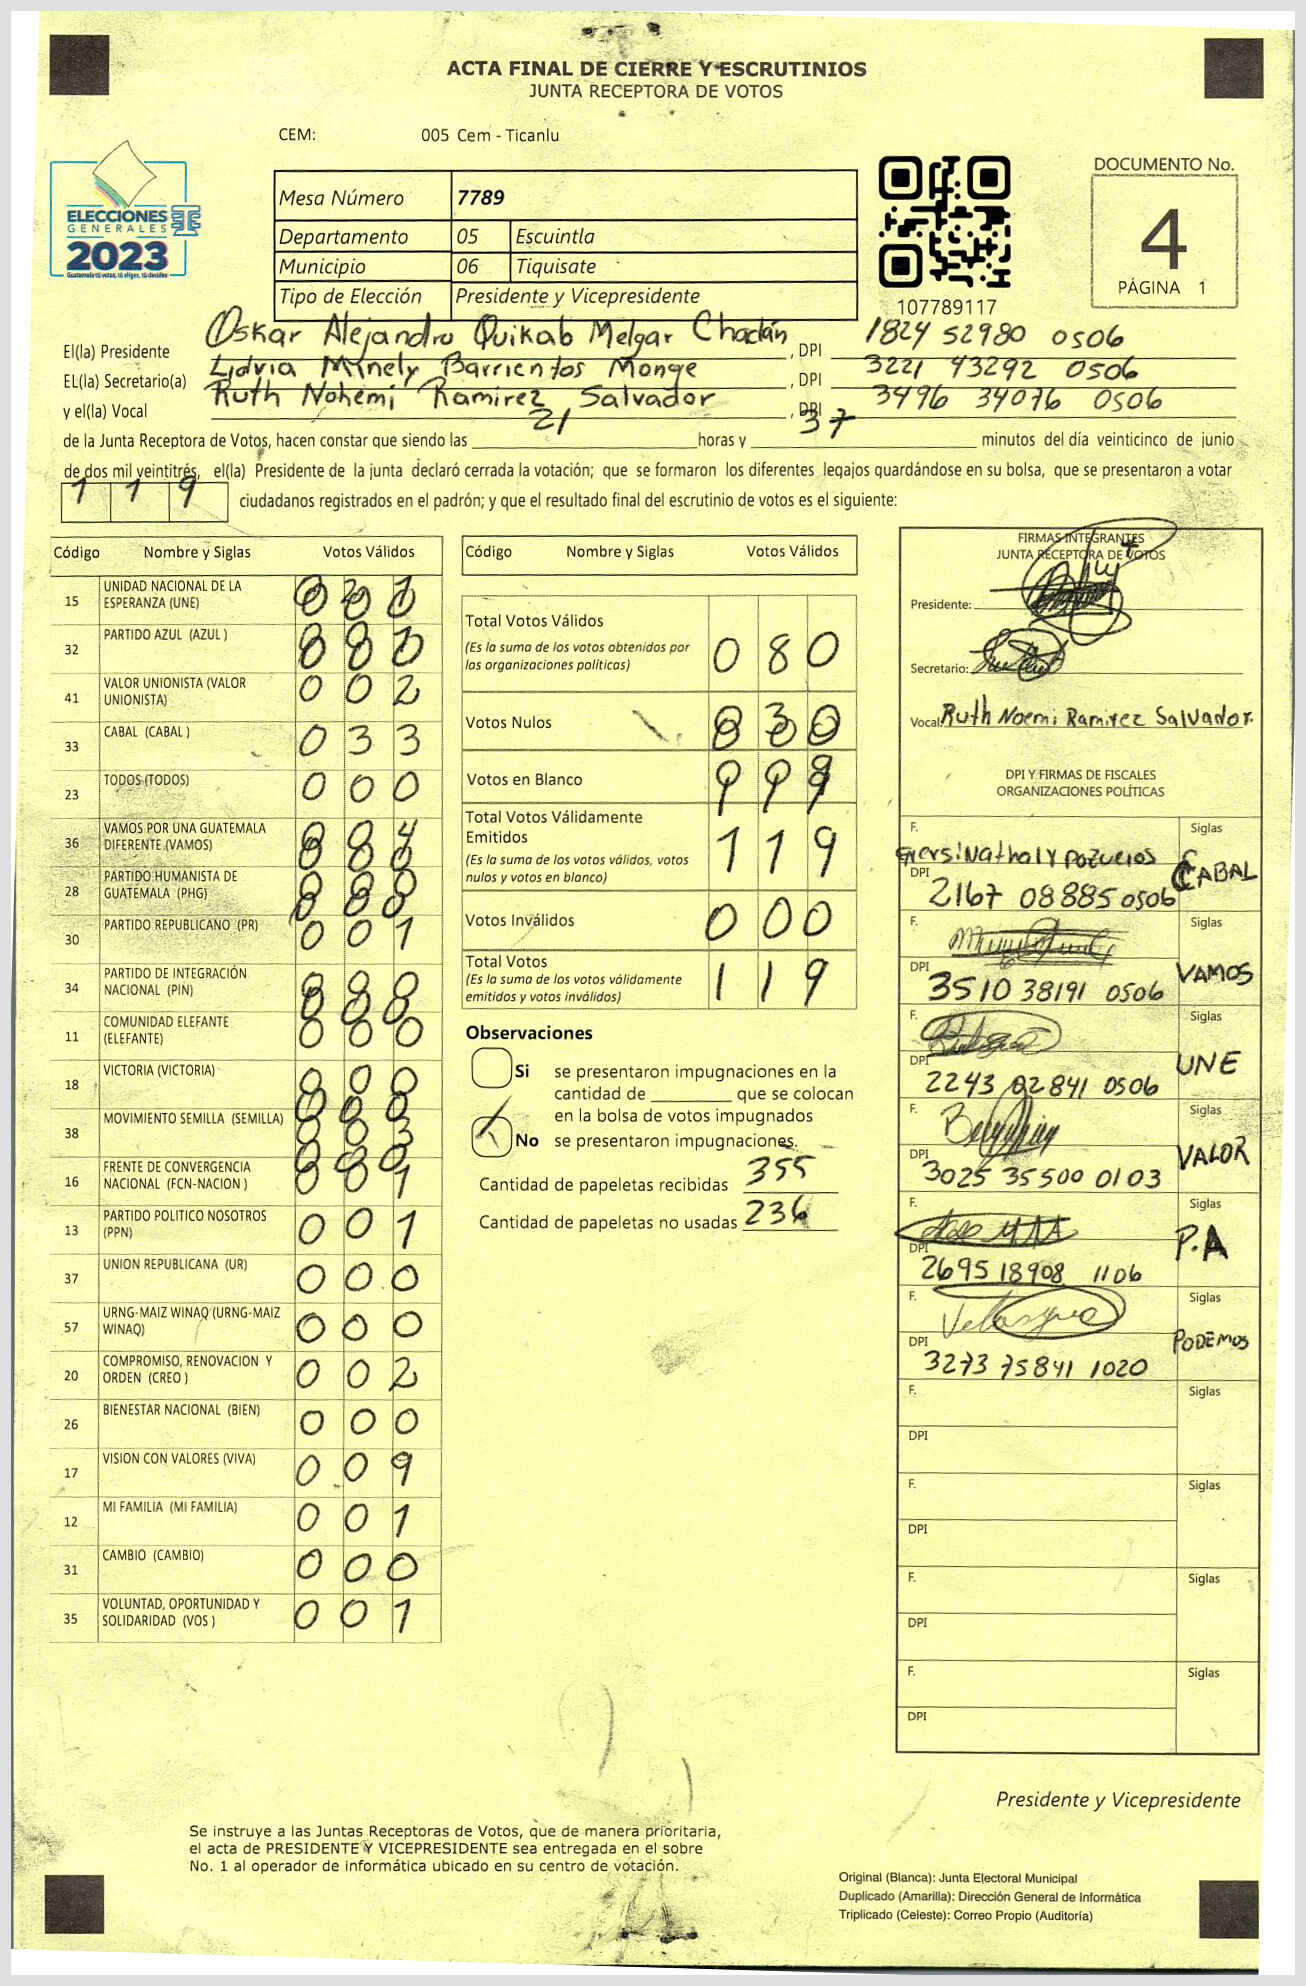 ACTA FINAL DE CIERRE Y ESCRUTINIOS
JUNTA RECEPTORA DE VOTOS
CEM: 005 Cem - Ticanlu
ELECCIONES
GENERALES
2023
Mesa Número 7789
Departamento 05 Escuintla
Municipio 06 Tiquisate
Tipo de Elección Presidente y Vicepresidente
107789117
DOCUMENTO No.
4
PÁGINA 1
El(la) Presidente Oskar Alejandro Quikab Melgar Chaclán, DPI 1824 52980 0506
EL(la) Secretario(a) Lidvia Minely Barrientos Monge, DPI 3221 43292 0506
y el(la) Vocal Ruth Nohemi Ramirez Salvador, DPI 3496 34076 0506
de la Junta Receptora de Votos, hacen constar que siendo las 21 horas y 37 minutos del día veinticinco de junio
de dos mil veintitrés, el(la) Presidente de la junta declaró cerrada la votación; que se formaron los diferentes legajos quardándose en su bolsa, que se presentaron a votar
119 ciudadanos registrados en el padrón; y que el resultado final del escrutinio de votos es el siguiente:
Código Nombre y Siglas Votos Válidos
15 UNIDAD NACIONAL DE LA ESPERANZA (UNE)
32 PARTIDO AZUL (AZUL )
41 VALOR UNIONISTA (VALOR UNIONISTA) 0 0 2
33 CABAL (CABAL ) 0 3 3
23 TODOS (TODOS) 0 0 0
36 VAMOS POR UNA GUATEMALA DIFERENTE (VAMOS)
28 PARTIDO HUMANISTA DE GUATEMALA (PHG)
30 PARTIDO REPUBLICANO (PR) 0 0 1
34 PARTIDO DE INTEGRACIÓN NACIONAL (PIN)
11 COMUNIDAD ELEFANTE (ELEFANTE) 0 0 0
18 VICTORIA (VICTORIA) 0 0 0
38 MOVIMIENTO SEMILLA (SEMILLA) 0 0 3
16 FRENTE DE CONVERGENCIA NACIONAL (FCN-NACION ) 0 0 1
13 PARTIDO POLITICO NOSOTROS (PPN) 0 0 1
37 UNION REPUBLICANA (UR) 0 0 0
57 URNG-MAIZ WINAQ (URNG-MAIZ WINAQ) 0 0 0
20 COMPROMISO, RENOVACION Y ORDEN (CREO ) 0 0 2
26 BIENESTAR NACIONAL (BIEN) 0 0 0
17 VISION CON VALORES (VIVA) 0 0 9
12 MI FAMILIA (MI FAMILIA) 0 0 1
31 CAMBIO (CAMBIO) 0 0 0
35 VOLUNTAD, OPORTUNIDAD Y SOLIDARIDAD (VOS ) 0 0 1
Código Nombre y Siglas Votos Válidos
Total Votos Válidos 0 8 0
(Es la suma de los votos obtenidos por
las organizaciones políticas)
Votos Nulos
Votos en Blanco
Total Votos Válidamente
Emitidos 1 1 9
(Es la suma de los votos válidos, votos
nulos y votos en blanco)
Votos Inválidos 0 0 0
Total Votos 1 1 9
(Es la suma de los votos válidamente
emitidos y votos inválidos)
Observaciones
Si se presentaron impugnaciones en la
cantidad de ________ que se colocan
en la bolsa de votos impugnados
No se presentaron impugnaciones.
Cantidad de papeletas recibidas 355
Cantidad de papeletas no usadas 236
FIRMAS INTEGRANTES
JUNTA RECEPTORA DE VOTOS
Presidente:
Secretario:
Vocal: Ruth Noemi Ramirez Salvador.
DPI Y FIRMAS DE FISCALES
ORGANIZACIONES POLÍTICAS
F. Siglas
CABAL
DPI 2167 08885 0506
F. Siglas
VAMOS
DPI 3510 38191 0506
F. Siglas
UNE
DPI 2243 02841 0506
F. Siglas
VALOR
DPI 3025 35500 0103
F. Siglas
P.A
DPI 2695 18908 1106
F. Velasquez Siglas
PODEMOS
DPI 3273 75841 1020
F. Siglas
DPI
F. Siglas
DPI
F. Siglas
DPI
F. Siglas
DPI
Presidente y Vicepresidente
Se instruye a las Juntas Receptoras de Votos, que de manera prioritaria,
el acta de PRESIDENTE Y VICEPRESIDENTE sea entregada en el sobre
No. 1 al operador de informática ubicado en su centro de votación.
Original (Blanca): Junta Electoral Municipal
Duplicado (Amarilla): Dirección General de Informática
Triplicado (Celeste): Correo Propio (Auditoría)